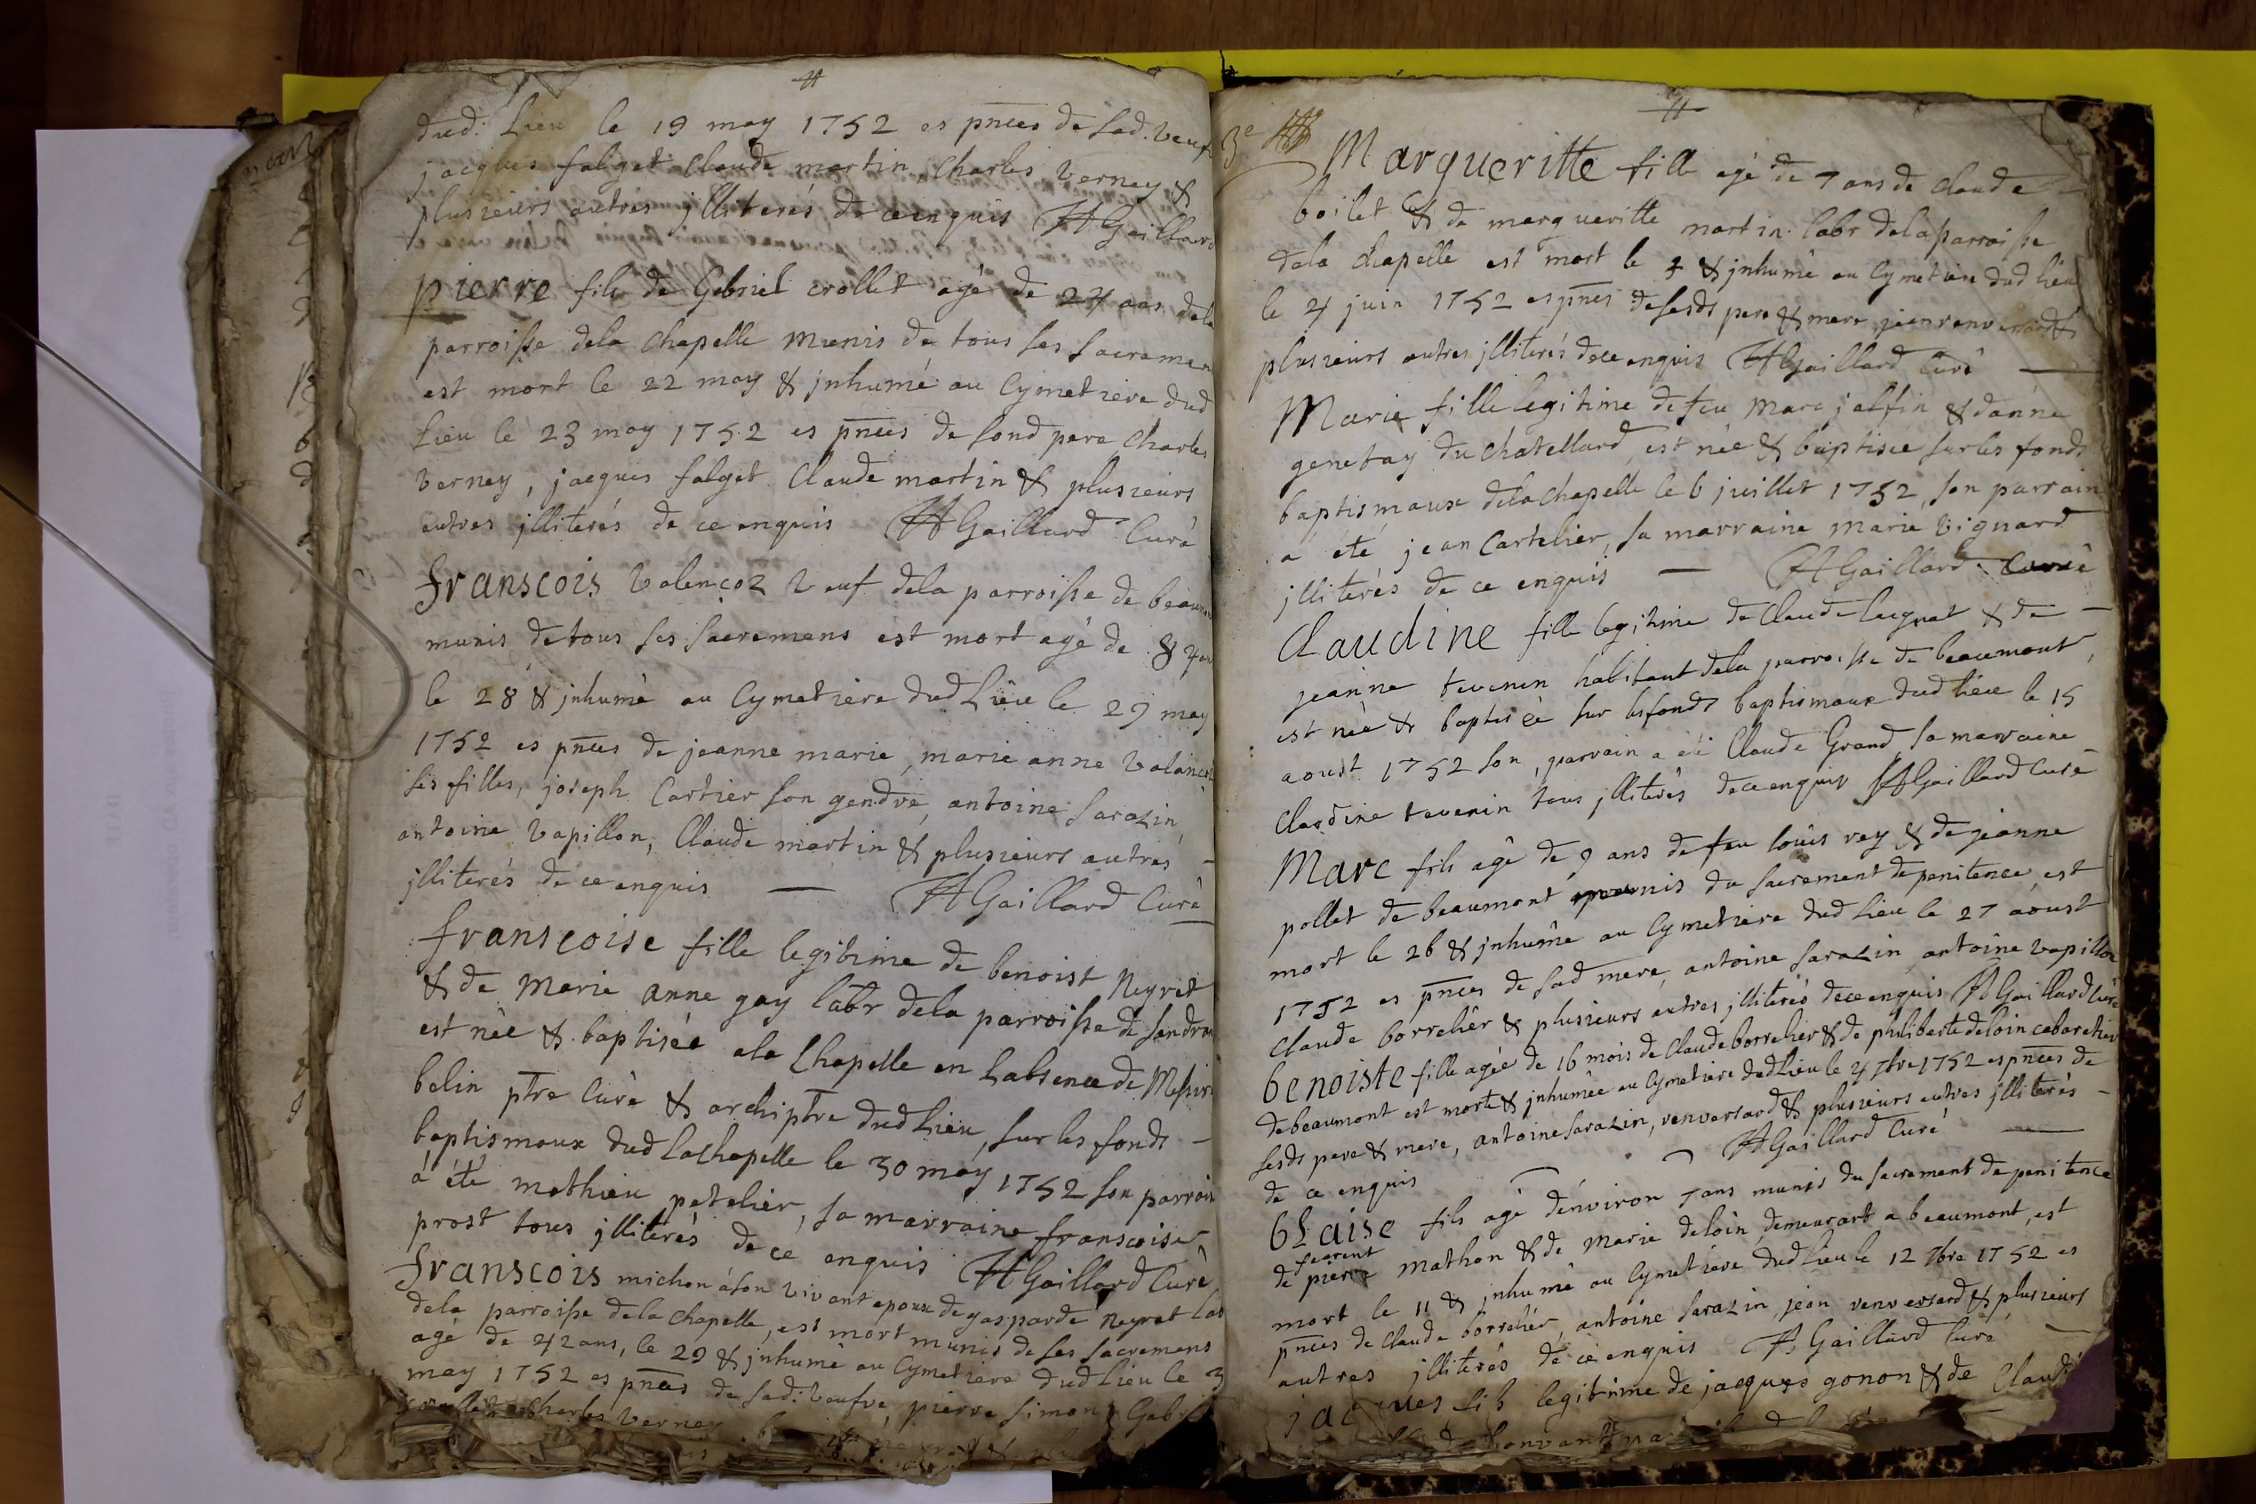 dud: Lieu le 19 may 1752 es pnces de sad. veufve
jacques falget Claude martin Charles verney &
plusieurs autres jlliterés de ce enquis HGaillard
pierre fils de Gebriel crollet agé de 24 ans dela
parroisse dela chapelle munis de tous ses sacremen
est mort le 22 may & jnhumé au Cymetiere dud
Lieu le 23 may 1752 es pnces de sond pere Charles
verney, jacques falget Claude martin & plusieurs
autres jlliterés de ce enquis HGaillard Curé
franscois valencoz veuf dela parroisse de beaumon
munis de tous ses sacremens est mort agé de 84 ans
le 28 & jnhumé au Cymetiere dud Lieu le 29 may
1752 es pnces de jeanne marie, marie anne valencoz
ses filles, joseph Cartier son gendre, antoine sarazin,
antoine vapillon, Claude martin & plusieurs autres
jlliterés de ce enquis HGaillard Curé
franscoise fille legitime de benoist Neyret
& de Marie anne gay labr dela parroisse de sandran
est née & baptisée ala Chapelle en Labsence de Messire
belin ptre Curé & archiptre dud Lieu, sur les fonds
baptismaux dud LaChapelle le 30 may 1752 son parrain
á été mathieu petelier, sa marraine franscoise
prost tous jlliterés de ce enquis HGaillard Curé
franscois michon áson vivant epoux de gasparde Neyret lab
dela parroisse dela Chapelle, est mort munis de ses sacremens
agé de 42 ans, le 29 & jnhumé au Cymetiere dud Lieu le 3
may 1752 es pnces de sad: veufve, pierre simon, Gebri
Charles verney
3e
Margueritte fille agé de 7 ans de claude
boilet & de margueritte martin labr delaparroisse
dela chapelle est mort le & jnhumé au Cymetiere dud lieu
le 4 juin 1752 es pnces de sesds pere & mere jean renversard &
plusieurs autres jlliterés de ce enquis HGaillard Curé
Marie fille legitime de feu Marc jalfin & danne
genetay du chatellard est née & baptisée sur les fonds
baptismaux dela chapelle le 6 juillet 1752, son parrain
a été jean Cartelier, sa marraine marie vignard
jlliterés de ce enquis HGaillard Curé
Claudine fille legitime de Claude laignat & de
jeanne tevenin habitant dela parroisse de beaumont,
est née & baptisée sur lesfonds baptismaux dud lieu le 15
aoust 1752 son parrain a été Claude Grand, sa marraine
Claudine tevenin tous jlliterés de ce enquis HGaillard Curé
Marc fils agé de 9 ans de feu louis rey & de jeanne
pollet de beaumont munis du sacrement de penitence est
mort le 26 & jnhumé au Cymetiere dud Lieu le 27 aoust
1752 es pnces de sad mere, antoine sarazin antoine vapillon
Claude borrelier & plusieurs autres jlliterés de ce enquis HGaillard Curé
benoiste fille agée de 16 mois de Claude borrelier & de philiberte deloin cabaretier
de beaumont est morte & jnhumée au Cymetiere dud Lieu le 4 7bre 1752 es pnces de
sesds pere & mere, antoine sarazin, renversard & plusieurs autres jlliterés
de ce enquis HGaillard Curé
bLaise fils agé d'énviron 7 ans munis du sacrement de penitence
de pierre mathon & de Marie deloin, demeurant a beaumont, est
mort le 11 & jnhumé au Cymetiere dud Lieu le 12 7bre 1752 es
pnces de Claude borrelier, antoine sarazin, jean renversard & plusieurs
autres jlliterés de ce enquis HGaillard Curé
jacques fils legitime de jacques gonon & de Claud